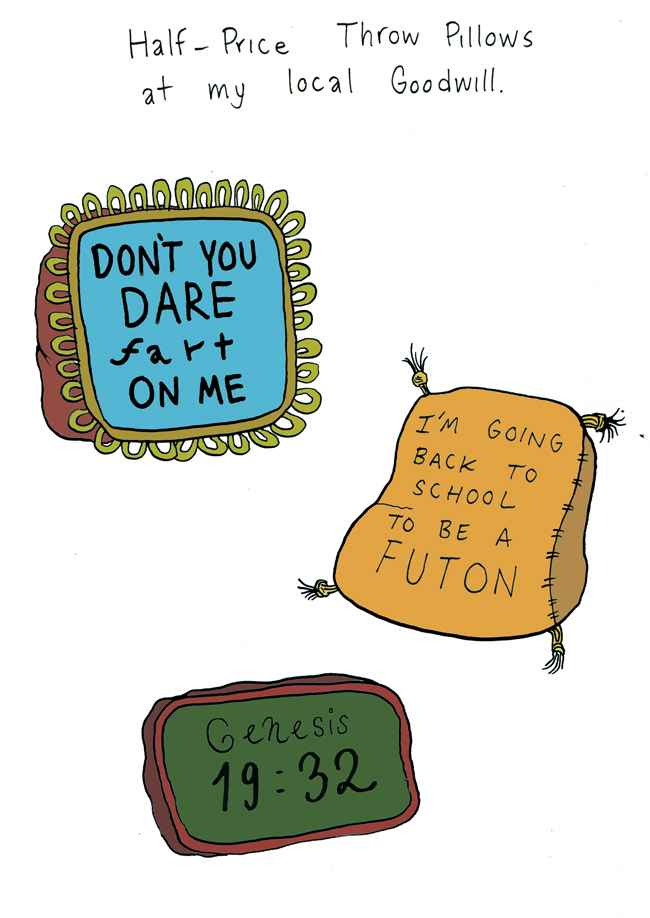 Half-Price Throw Pillows
at my local Goodwill.
DON'T YOU
DARE
fart
ON ME
I'M GOING
BACK TO
SCHOOL
TO BE A
FUTON
Genesis
19:32